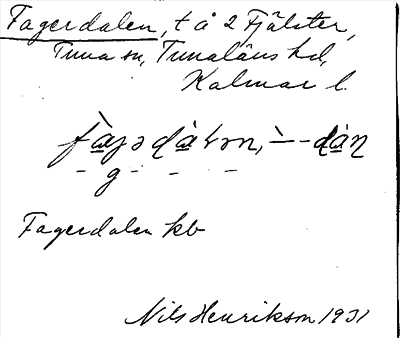 Fagerdalen, t å 2 Fjälster,
Tuna sn, Tunaläns hd,
Kalmar l.
fàgədàlən, ̀--dàn
- g - -
Fagerdalen kb
Nils Henrikson 1931